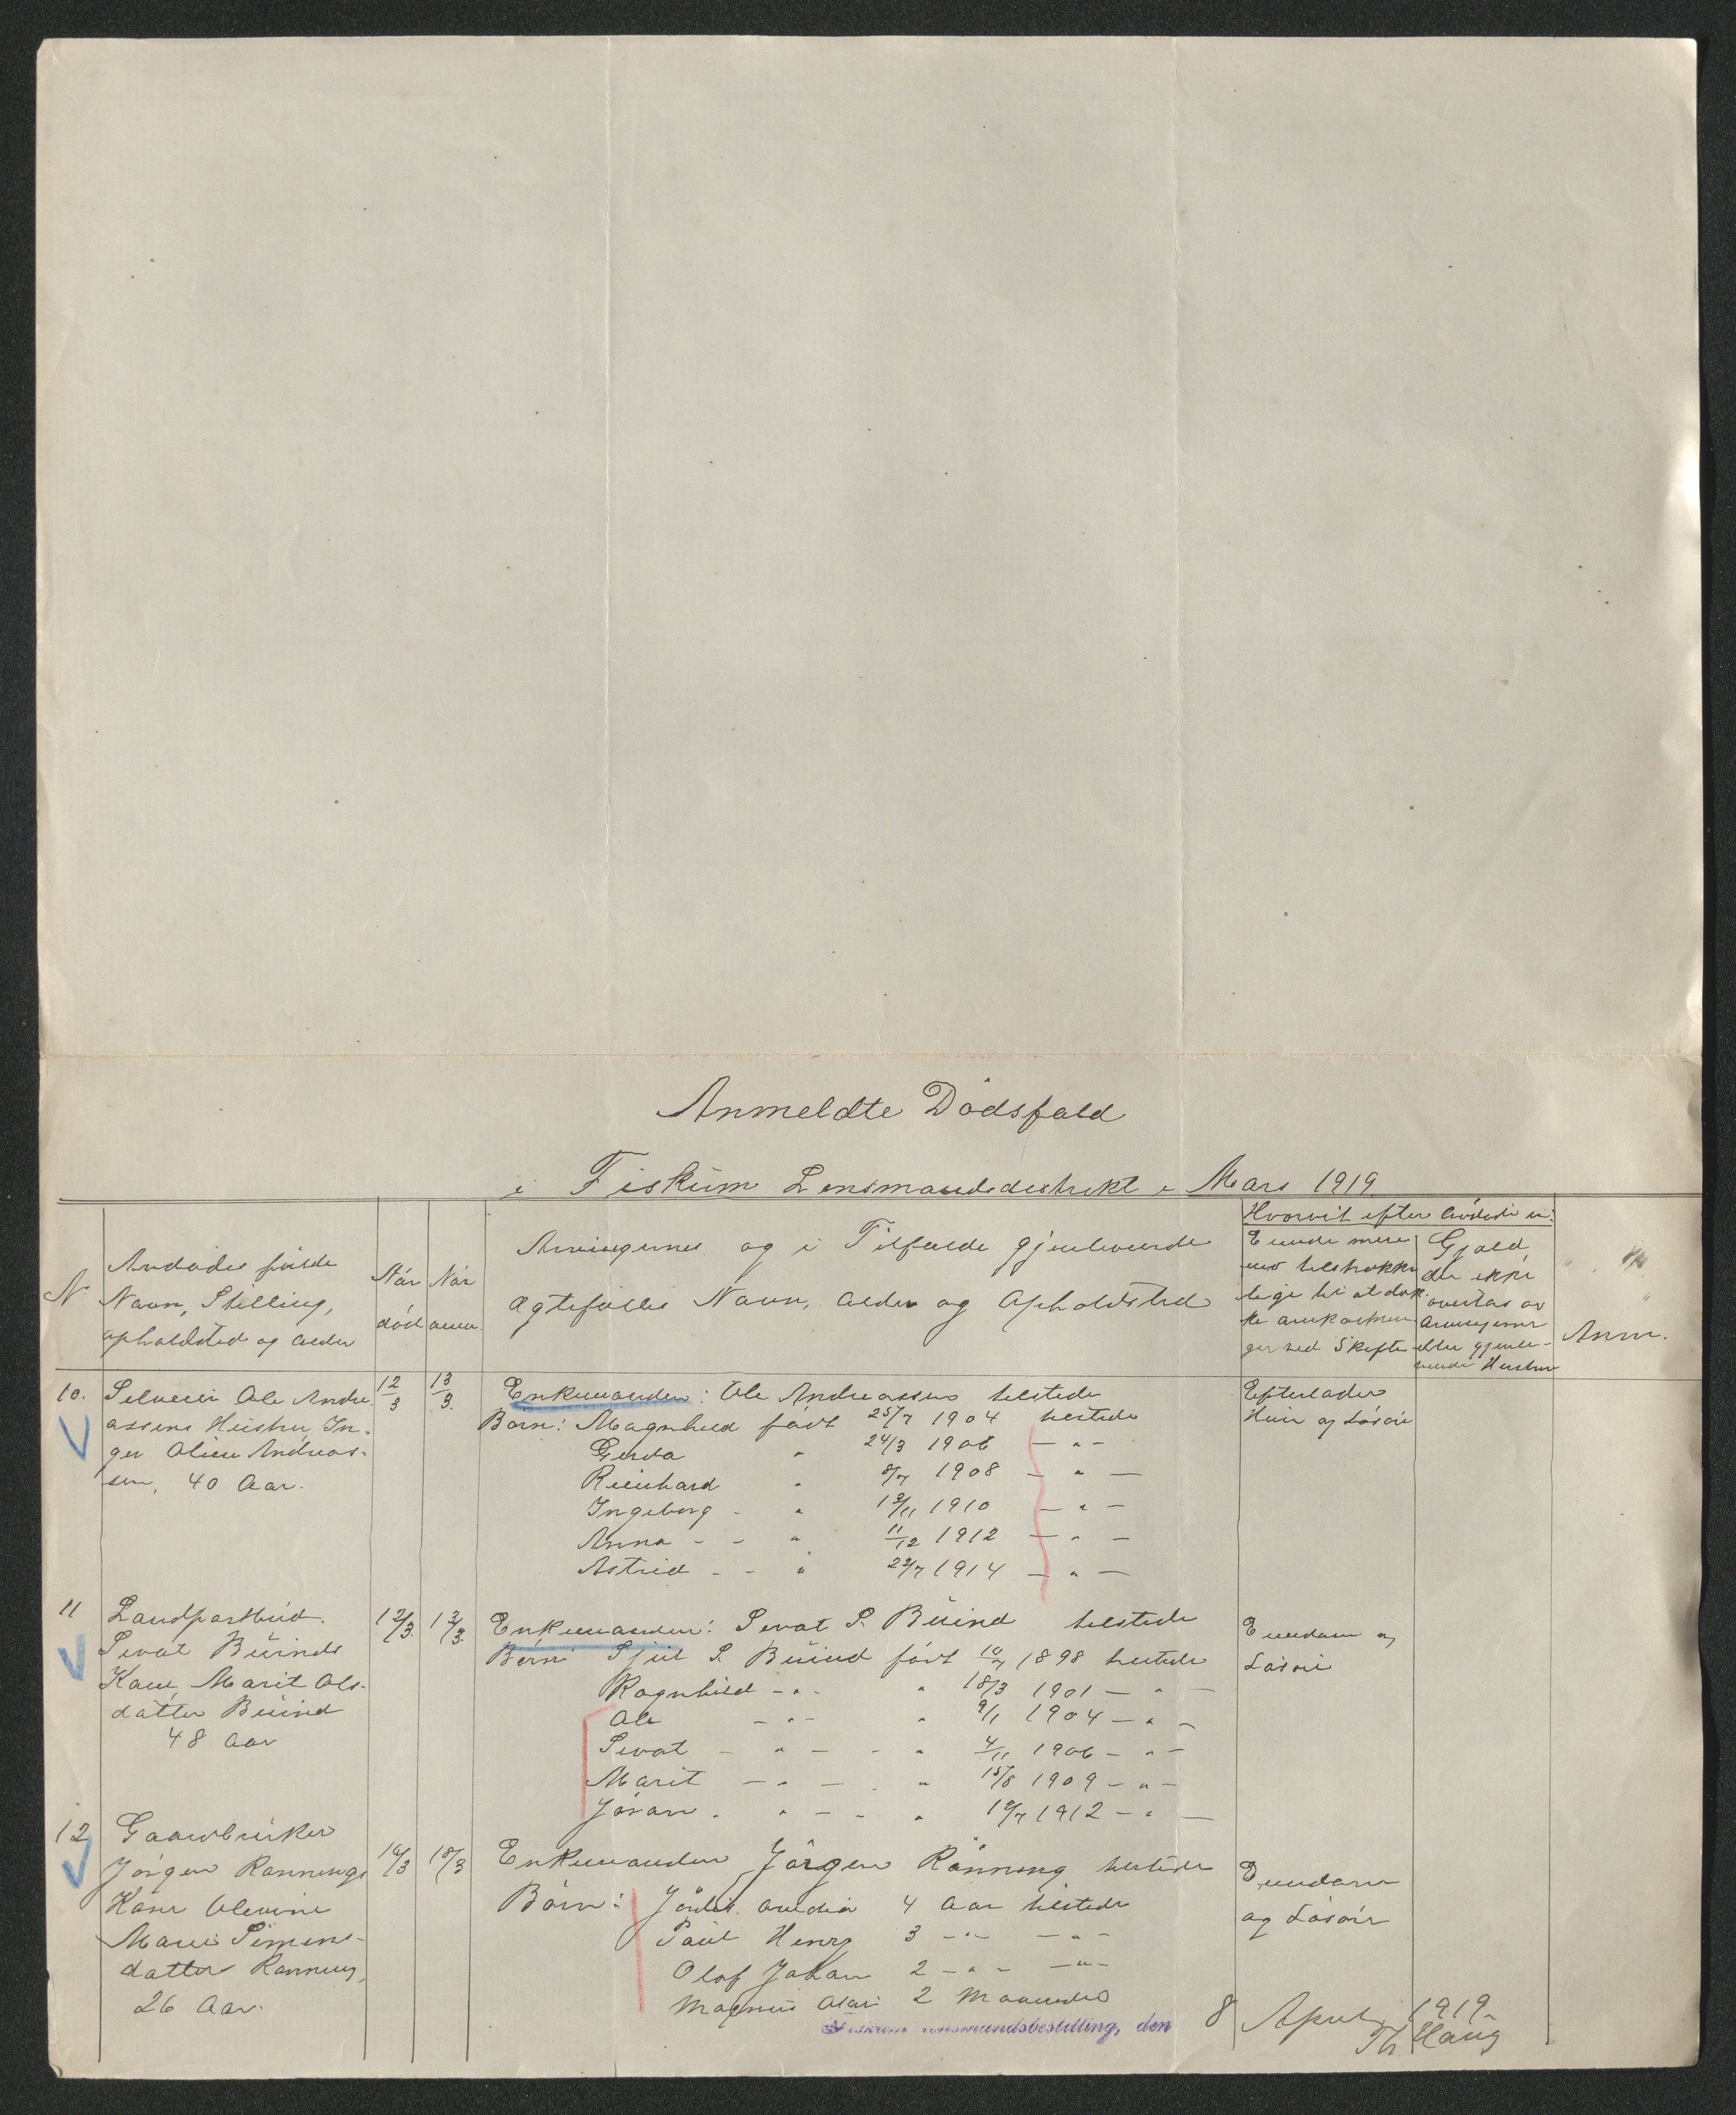 Anmeldte Dødsfald
i Fiskum Lensmandsdistrikt i Mars 1919
N
Avdødes fulde
Navn, Stilling,
opholdsted og alder
Når
død
Når
anm.
Arvingernes og i Tilfælde gjenlevende
Ægtefælles Navn, Alder og Opholdsted
Hvorvit efter avdøde er:
Eiende mere
end tilstrække
lige til at dæk
ke omkostnin
ger ved Skifte
Gjæld,
der ikke
overtas av
Arvingerne
eller gjenle-
vende Hustru
Anm.
10. Selveier Ole Andre
assens Hustru In-
ger Oline Andreas-
sen, 40 Aar.
12/3
13/3.
Enkemanden: Ole Andreassen hersteds
Børn: Magnhild født 25/7 1904 hersteds
Gerda " 24/3 1906 — " —
Reinhard " 8/7 1908 — " —
Ingeborg - " 13/11 1910 — " —
Anna - - " 11/12 1912 — " —
Astrid - - " 22/7 1914 — " —
Efterlader
Huse og Løsøre
11 Landpostbud.
Sevat Buinds
Kone, Marit Ols-
datter Buind
48 Aar
12/3.
13/3.
Enkemanden: Sevat S. Buind hersteds
Børn Sjul S. Buind født 10/7 1898 hersteds
Ragnhild - " - " 18/3 1901 — " —
Ole — " — " 9/1 1904 — " —
Sevat — " — - " 4/11 1906 — " —
Marit — " — - " 15/8 1909 — " —
Jøran - " — - " 12/7 1912 — " —
Eiendom og
Løsøre
12 Gaardbruker
Jørgen Rønnings
Kone Olevine
Marie Simens-
datter Rønning,
26 Aar.
16/3
18/3
Enkemanden Jørgen Rønning hersteds
Børn: Jørdis 4 Aar hersteds
Paul Henry 3 — " — — " —
Olaf Johan 2 — " — — " —
Magnus 2 Maaneder
Eiendom
og Løsøre
Fiskum lensmandsbestilling, den 8 April 1919.
Th. Haug